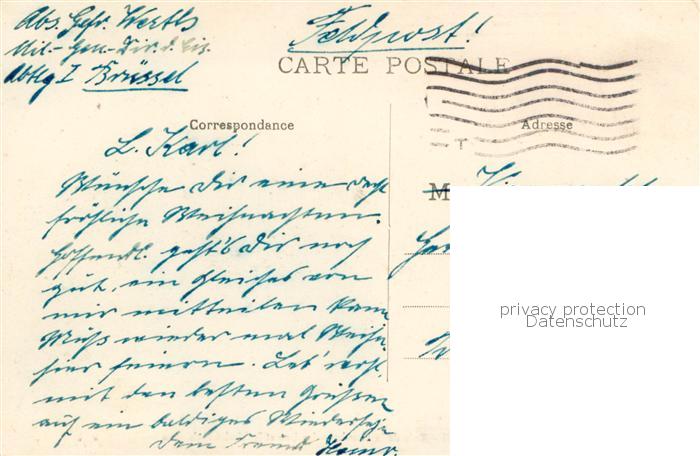 Abs. Gefr. Werth
Mil.-Gen.-Dir. d. Eis.
Abtlg I Brüssel
Feldpost!
CARTE POSTALE
Correspondance
Adresse
M
L. Karl!
Wünsche Dir eine recht
fröhliche Weihnachten.
Hoffendl. geht's Dir noch
gut, ein gleiches von
mir mitteilen kann
Muß wieder mal Weihn.
hier feiern. Leb' wohl
mit den besten Grüßen
auf ein baldiges Wiedersehn
Dein Freund Heinr.
privacy protection
Datenschutz